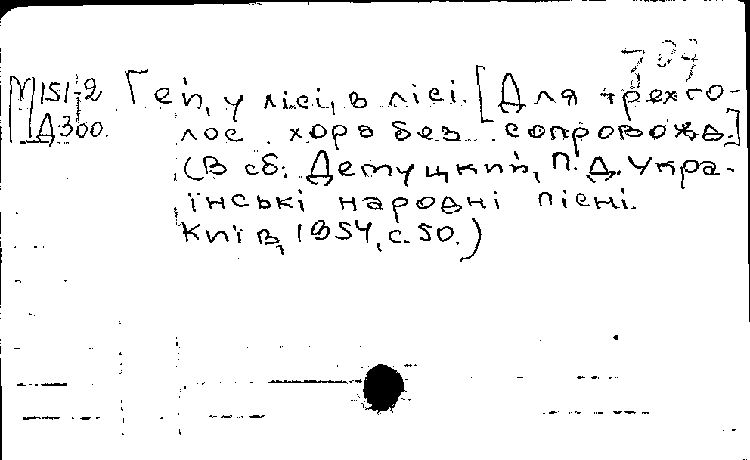 709
М151-2 Гей, у лісі, в лісі. [Для трехго-
Д300. лос. хора без сопровожд.]
(В сб: Демуцкий, П.Д. Укра-
їнські народні пісні.
Київ, 1954, с. 50.)